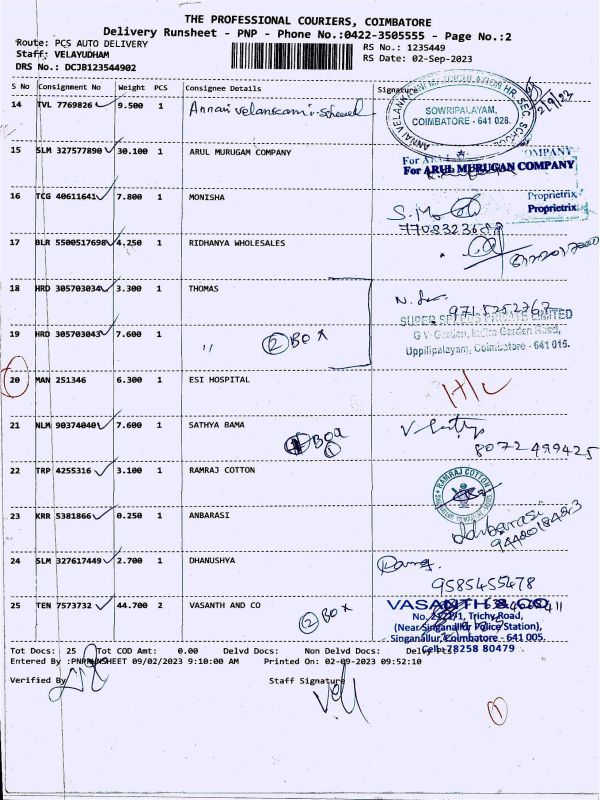 THE PROFESSIONAL COURIERS, COIMBATORE
Delivery Runsheet - PNP - Phone No.:0422-3505555 - Page No.:2
Route: PCS AUTO DELIVERY
RS No.: 1235449
Staff: VELAYUDHAM
RS Date: 02-Sep-2023
DRS No.: DCJB123544902
S No Consignment No Weight PCS Consignee Details Signature
14 TVL 7769826 9.500 1 Annai velankanni
SOWRIPALAYAM,
COIMBATORE - 641 028.
2/9/23
15 SLM 327577890 30.100 1 ARUL MURUGAN COMPANY
For ARUL MURUGAN COMPANY
Proprietrix
Proprietrix
16 TCG 40611641 7.800 1 MONISHA
17 BLR 5500517698 4.250 1 RIDHANYA WHOLESALES
18 HRD 305703034 3.300 1 THOMAS
9715252767
PRIVATE LIMITED
G V Garden, Indira Garden Road,
Uppilipalayam, Coimbatore - 641 015.
19 HRD 305703043 7.600 1 " 2 BOX
20 MAN 251346 6.300 1 ESI HOSPITAL
21 NLM 90374040 7.600 1 SATHYA BAMA
8072499425
22 TRP 4255316 3.100 1 RAMRAJ COTTON
RAMRAJ COTTON
23 KRR 5381866 0.250 1 ANBARASI
Anbarasi
24 SLM 327617449 2.700 1 DHANUSHYA
9585455478
25 TEN 7573732 44.700 2 VASANTH AND CO 2 BOX
VASANTH & CO
Trichy Road,
(Near Singanallur Police Station),
Singanallur, Coimbatore - 641 005.
Cell: 78258 80479
Tot Docs: 25 Tot COD Amt: 0.00 Delvd Docs: Non Delvd Docs:
Entered By :PNPRUNSHEET 09/02/2023 9:10:00 AM Printed On: 02-09-2023 09:52:10
Verified By
Staff Signature
1